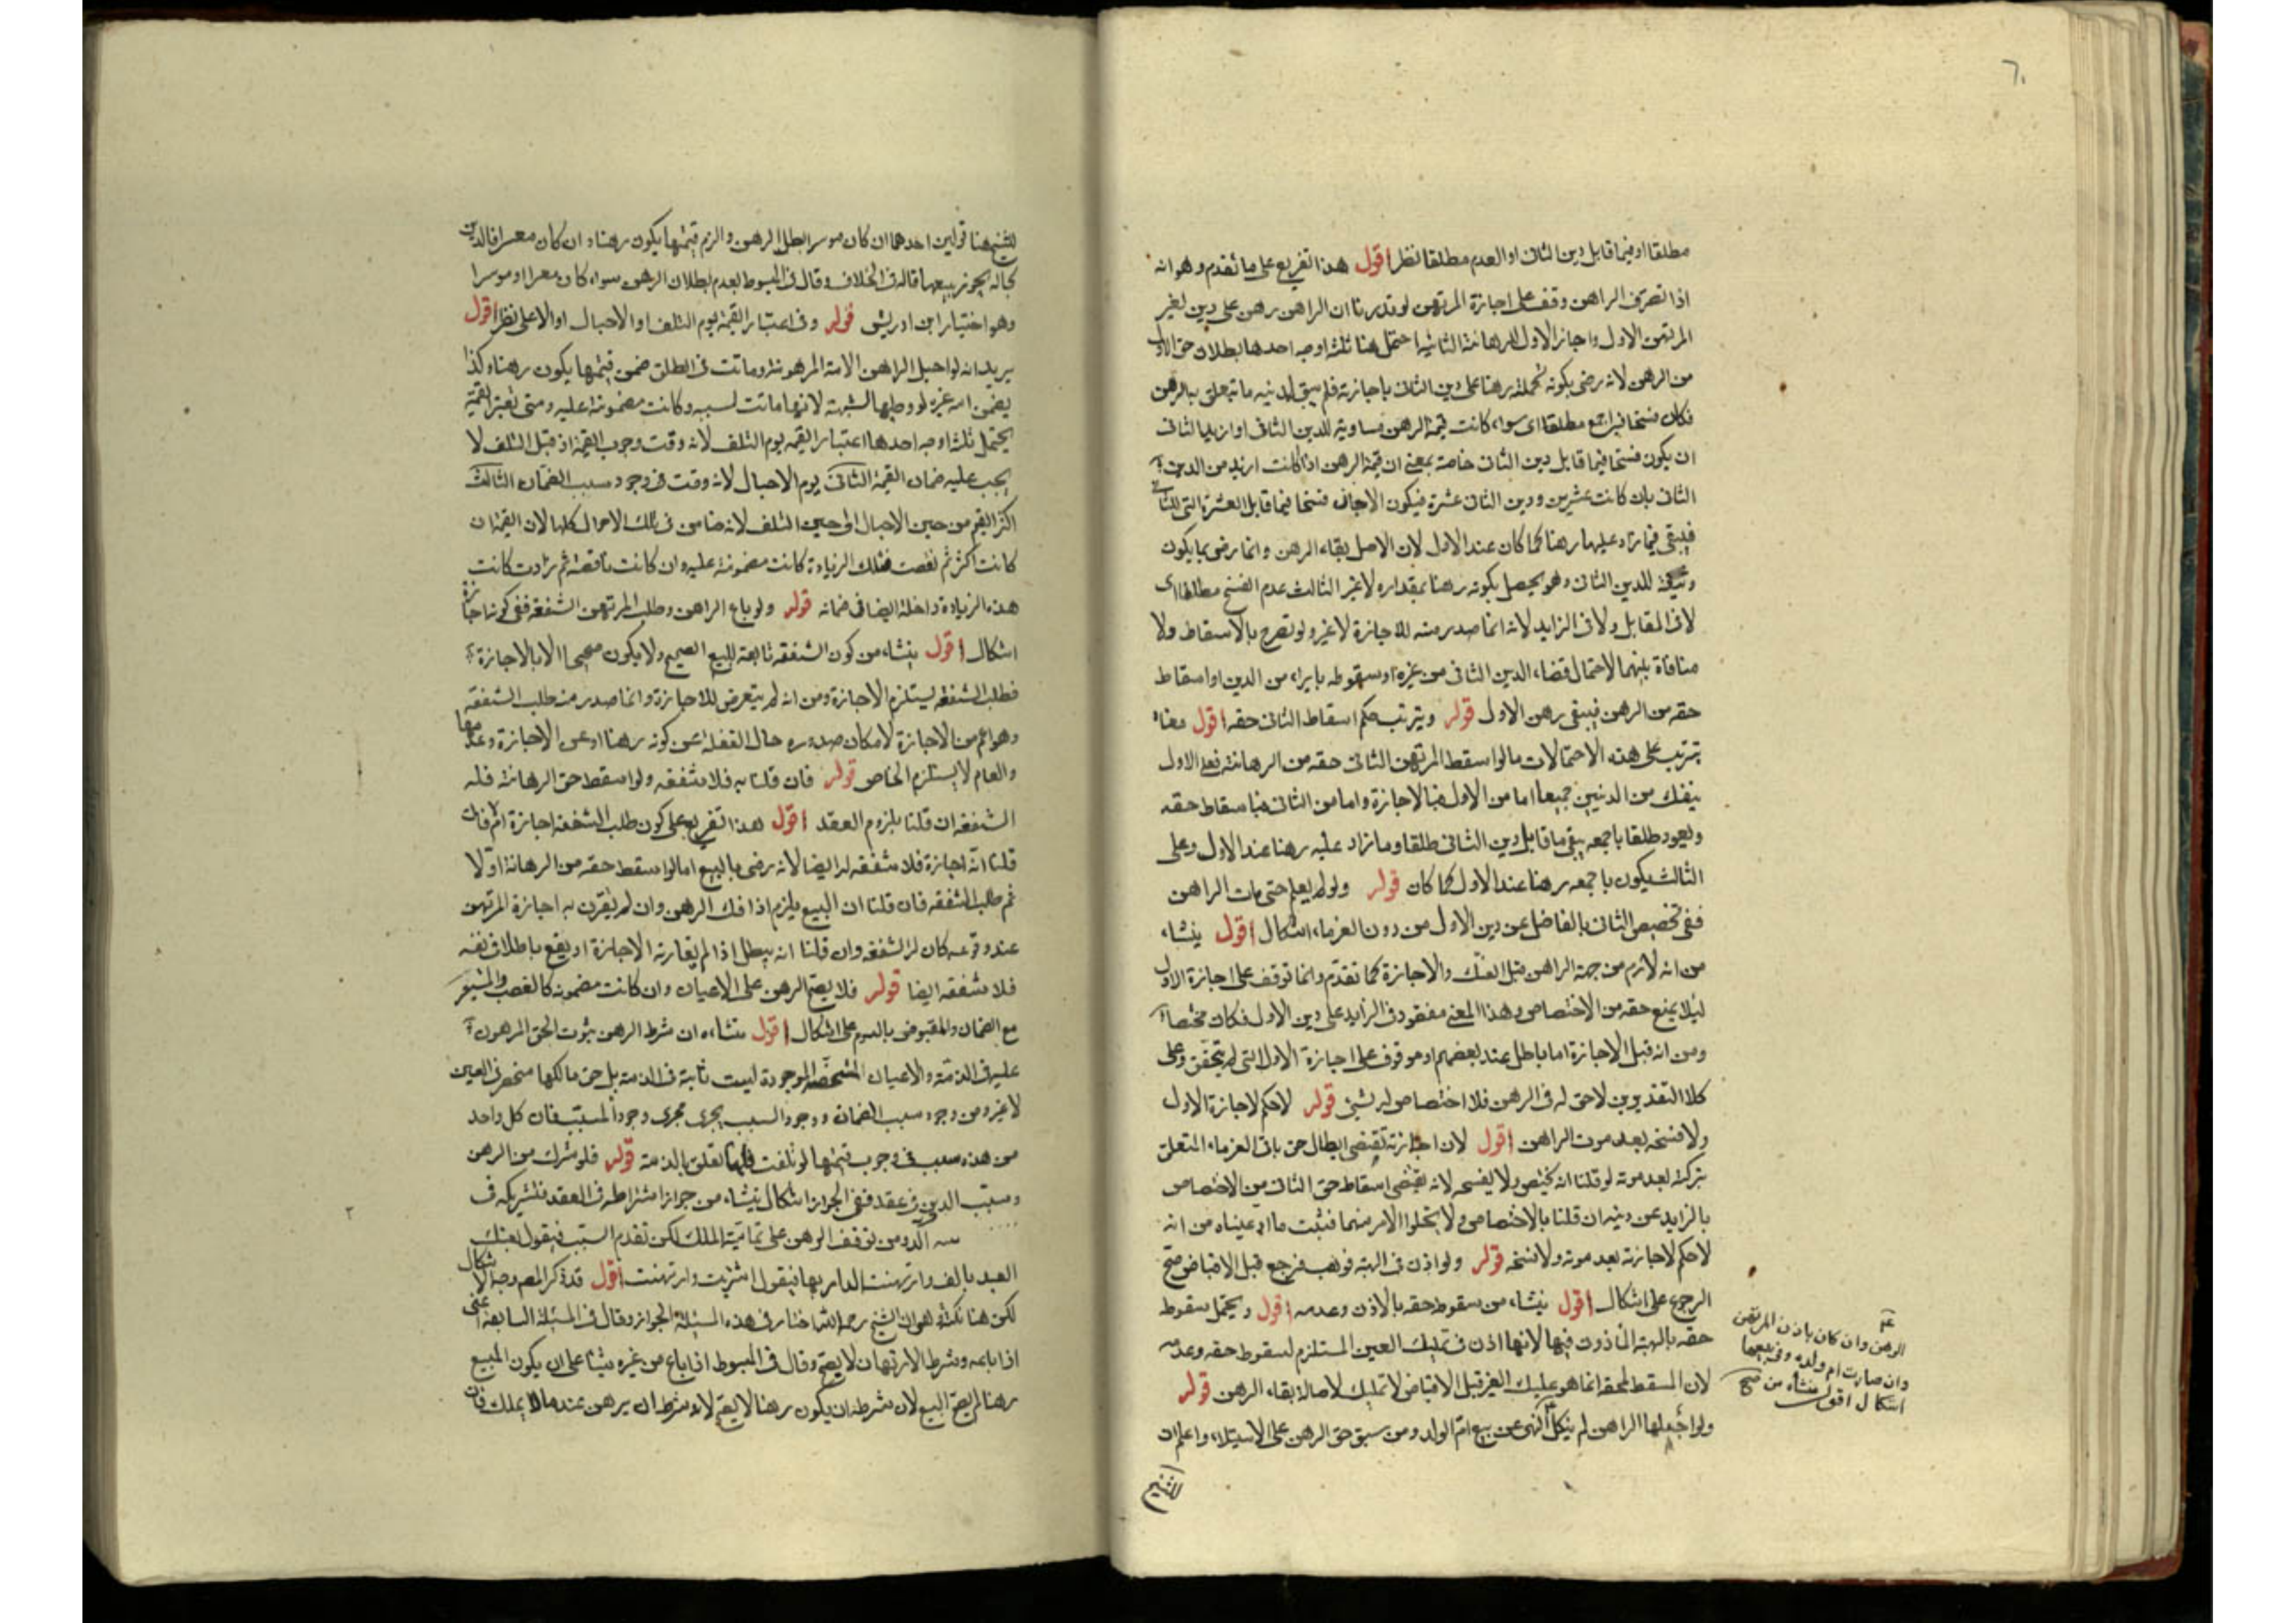 ٦٠
مطلقا او فيما قابل دين الثانى او العدم مطلقا نظر اقول هذا تفريع على ما تقدم وهو انه
اذا تصرف الراهن وقف على اجازة المرتهن لو قدرنا ان الراهن رهن على دين لغير
المرتهن الاول واجاز الاول للرهانة الثانية احتمل هنا ثلثة اوجه احدها بطلان حق الاول
من الرهن لانه رضى بكونه بجملته رهنا على دين الثانى باجازته فلم يبق لدينه ما يتعلق به الرهن
فكان فسخا فى اجمع مطلقا اى سواء كانت قيمة الرهن مساوية للدين الثانى او ازيد الثانى
ان يكون فسخا فيما قابل دين الثانى خاصة بمعنى ان قيمة الرهن اذا كانت ازيد من الدين
الثانى بان كانت عشرين ودين الثانى عشرة فيكون الاجازة فسخا فيما قابل العشرة التى للثانى
فيبقى فيما زاد عليها رهنا كما كان عند الاول لان الاصل بقاء الرهن وانما رضى بما يكون
وثيقة للدين الثانى وهو يحصل بكونه رهنا بمقداره لا غير الثالث عدم الفسخ مطلقا اى
لا فى المقابل ولا فى الزايد لانه انما صدر منه للاجازة لا غير ولو تصرح بالاسقاط ولا
منافاة بينهما لاحتمال قضاء الدين الثانى من غيره او سقوطه بابراء من الدين او اسقاط
حقه من الرهن فيبقى رهن الاول قوله ويترتب حكم اسقاط الثانى حقه اقول معناه
يترتب على هذه الاحتمالات ما لو اسقط المرتهن الثانى حقه من الرهانة فعلى الاول
ينفك من الدينين جميعا اما من الاول فبالاجازة واما من الثانى فباسقاط حقه
ويعود طلقا باجمعه يبقى ما قابل دين الثانى طلقا وما زاد عليه رهنا عند الاول وعلى
الثالث يكون باجمعه رهنا عند الاول كما كان قوله ولو لم يعلم حتى مات الراهن
ففى تخصيص الثانى بالفاضل عن دين الاول من دون الغرماء اشكال اقول ينشاء
من انه لازم من جهة الراهن قبل الفك والاجازة كما تقدم وانما توقف على اجازة الاول
ليلا يمنع حقه من الاختصاص وهذا المعنى مفقود فى الزايد على دين الاول فكان مختصا
ومن انه قبل الاجازة اما باطل عند بعضهم او موقوف على اجازة الاول التى لم يتحقق وعلى
كلا التقديرين لا حق له فى الرهن فلا اختصاص له بشئ قوله لا حكم لاجازة الاول
ولا فسخه بعد موت الراهن اقول لان اجازته تقتضى ابطال حق باقى الغرماء المتعلق
بتركته بعد موته لو قلنا انه يختص ولا يفسخه لانه يقتضى اسقاط حق الثانى من الاختصاص
بالزايد عن دينه ان قلنا بالاختصاص ولا يخلوا الامر منهما فثبت ما ادعيناه من انه
لا حكم لاجازته بعد موته ولا فسخه قوله ولو اذن فى الهبة فوهب فرجع قبل الاقباض صح
الرجوع على اشكال اقول ينشاء من سقوط حقه بالاذن وعدمه اقول ويحتمل سقوط
حقه بالهبة المأذون فيها لانها اذن فى تمليك العين المستلزم لسقوط حقه وعدمه
لان المسقط لحقه انما هو تمليك الغير قبل الاقباض لا تمليك لاصالة بقاء الرهن قوله
ولو احبلها الراهن لم يبطل النهى عن بيع ام الولد ومن سبق حق الرهن على الاستيلاد واعلم ان
الرهن وان كان باذن المرتهن
وان صارت ام ولد وفى بيعها
اشكال اقول ينشاء من صح
للشيخ
للشيخ هنا قولين احدهما ان كان موسرا بطل الرهن والزم قيمتها يكون رهنا وان كان معسرا فالدين
بحاله يجوز بيعها قاله فى الخلاف وقال فى المبسوط بعدم بطلان الرهن سواء كان معسرا او موسرا
وهو اختيار ابن ادريس قوله وفى اعتبار القيمة يوم التلف او الاحبال او الاعلى نظر اقول
يريد انه لو احبل الراهن الامة المرهونة وماتت فى الطلق ضمن قيمتها يكون رهنا وكذا
يضمن امة غيره لو وطئها لشبهة لانها ماتت لسببه وكانت مضمونة عليه ومتى تعتبر القيمة
يحتمل ثلثة اوجه احدها اعتبار القيمة يوم التلف لانه وقت وجوب القيمة اذ قبل التلف لا
يجب عليه ضمان القيمة الثانى يوم الاحبال لانه وقت فى وجود سبب الضمان الثالث
اكثر القيم من حين الاحبال الى حين التلف لانه ضامن فى تلك الاحوال كلها لان القيمة ان
كانت اكثر ثم نقصت فتلك الزيادة كانت مضمونة عليه وان كانت ناقصة ثم زادت كانت
هذه الزيادة داخلة ايضا فى ضمانه قوله ولو باع الراهن وطلب المرتهن الشفعة ففى كونها اجازة
اشكال اقول ينشاء من كون الشفعة تابعة للبيع الصحيح ولا يكون صحيحا الا بالاجازة
فطلب الشفعة يستلزم الاجازة ومن انه لم يتعرض للاجازة وانما صدر منه طلب الشفعة
وهو اعم من الاجازة لامكان صدوره حال الغفلة عن كونه رهنا او عن الاجازة وعدمها
والعام لا يستلزم الخاص قوله فان قلنا به فلا شفعة ولو اسقط حق الرهانة فله
الشفعة ان قلنا بلزوم العقد اقول هذا تفريع على كون طلب الشفعة اجازة ام فان
قلنا انه اجازة فلا شفعة له ايضا لانه رضى بالبيع اما لو اسقط حقه من الرهانة اولا
ثم طلب الشفعة فان قلنا ان البيع يلزم اذا فك الرهن وان لم يقترن به اجازة المرتهن
عند وقوعه كان له الشفعة وان قلنا انه يبطل اذا لم يقارنه الاجازة او يقع باطلا فى نفسه
فلا شفعة ايضا قوله فلا يصح الرهن على الاعيان وان كانت مضمونة كالغصب والمستعير
مع الضمان والمقبوض بالسوم على اشكال اقول منشاءه ان شرط الرهن ثبوت الحق المرهون
عليه فى الذمة والاعيان المشخصة الموجودة ليست ثابتة فى الذمة بل حق مالكها منحصر فى العين
لا غير ومن وجود سبب الضمان ووجود السبب يجرى مجرى وجود المسبب فان كل واحد
من هذه سبب فى وجوب قيمتها لو تلفت فلها تعلق بالذمة قوله فلو شرك من الرهن
وسبب الدين فى عقد ففى الجواز اشكال ينشاء من جواز اشتراطه فى العقد فتشريكه فى
ومن توقف الرهن على تمامية الملك لكن تقدم السبب فيقول بعتك
العبد بالف وارتهنت الدار بها فيقول اشتريت وارتهنت اقول قد ذكر المصنف وجه الاشكال
لكن هنا نكتة وهو ان الشيخ رحمه الله اختار فى هذه المسئلة الجواز وقال فى المسئلة السابعة اعنى
اذا باعه وشرط الارتهان لا يصح وقال فى المبسوط اذا باع من غيره شيئا على ان يكون المبيع
رهنا لم يصح البيع لان شرطه ان يكون رهنا لا يصح لانه شرط ان يرهن عنده ما لا يملك فان